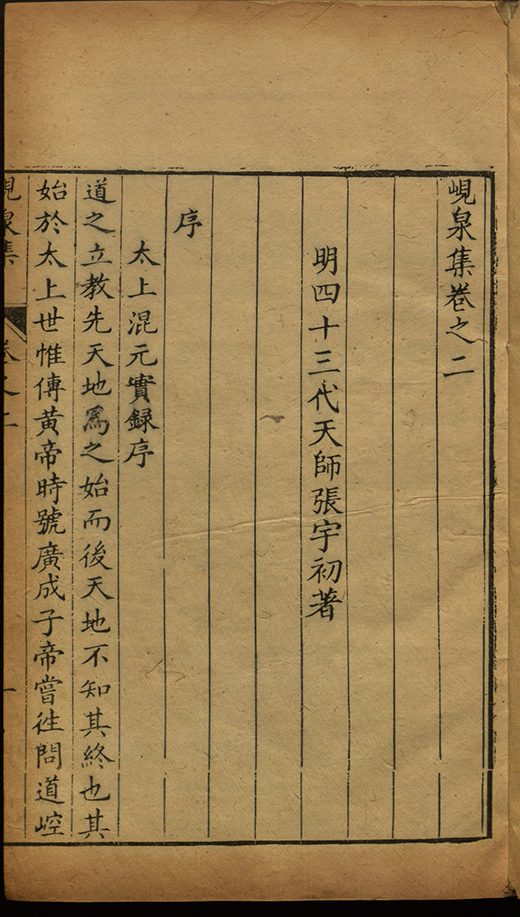 峴泉集卷之二
明四十三代天師張宇初著
序
太上混元實録序
道之立教先天地爲之始而後天地不知其終也其
始於太上世惟傳黃帝時號廣成子帝嘗徃問道崆
峴泉集 卷之二 一